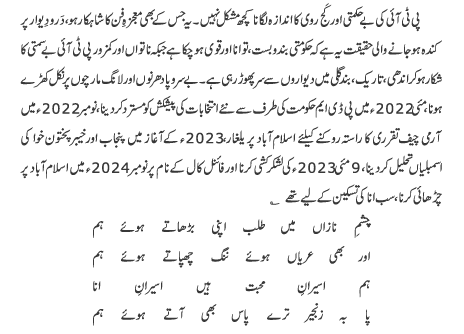 پی ٹی آئی کی بے حکمتی اور کج روی کا اندازہ لگانا کچھ مشکل نہیں۔ یہ جس کے بھی معجزۂ فن کا شاہکار ہو، در و دیوار پر
کندہ ہو جانے والی حقیقت یہ ہے کہ حکومتی بندوبست، توانا اور قوی ہو چکا ہے جبکہ ناتواں اور کمزور پی ٹی آئی بے سمتی کا
شکار ہو کر اندھی، تاریک، بند گلی میں دیواروں سے سر پھوڑ رہی ہے۔ بے سروپا دھرنوں اور لانگ مارچوں پر نکل کھڑے
ہونا، مئی 2022ء میں پی ڈی ایم حکومت کی طرف سے نئے انتخابات کی پیشکش کو مسترد کر دینا، نومبر 2022ء میں
آرمی چیف تقرری کا راستہ روکنے کیلئے اسلام آباد پر یلغار، 2023ء کے آغاز میں پنجاب اور خیبر پختون خوا کی
اسمبلیاں تحلیل کر دینا، 9 مئی 2023ء کی لشکر کشی کرنا اور فائنل کال کے نام پر نومبر 2024ء میں اسلام آباد پر
چڑھائی کرنا، سب انا کی تسکین کے لیے تھے ؎
چشمِ نازاں میں طلب اپنی بڑھاتے ہوئے ہم
اور بھی عریاں ہوئے ننگ چھپاتے ہوئے ہم
ہم اسیرانِ محبت ہیں اسیرانِ انا
پا بہ زنجیر ترے پاس بھی آتے ہوئے ہم